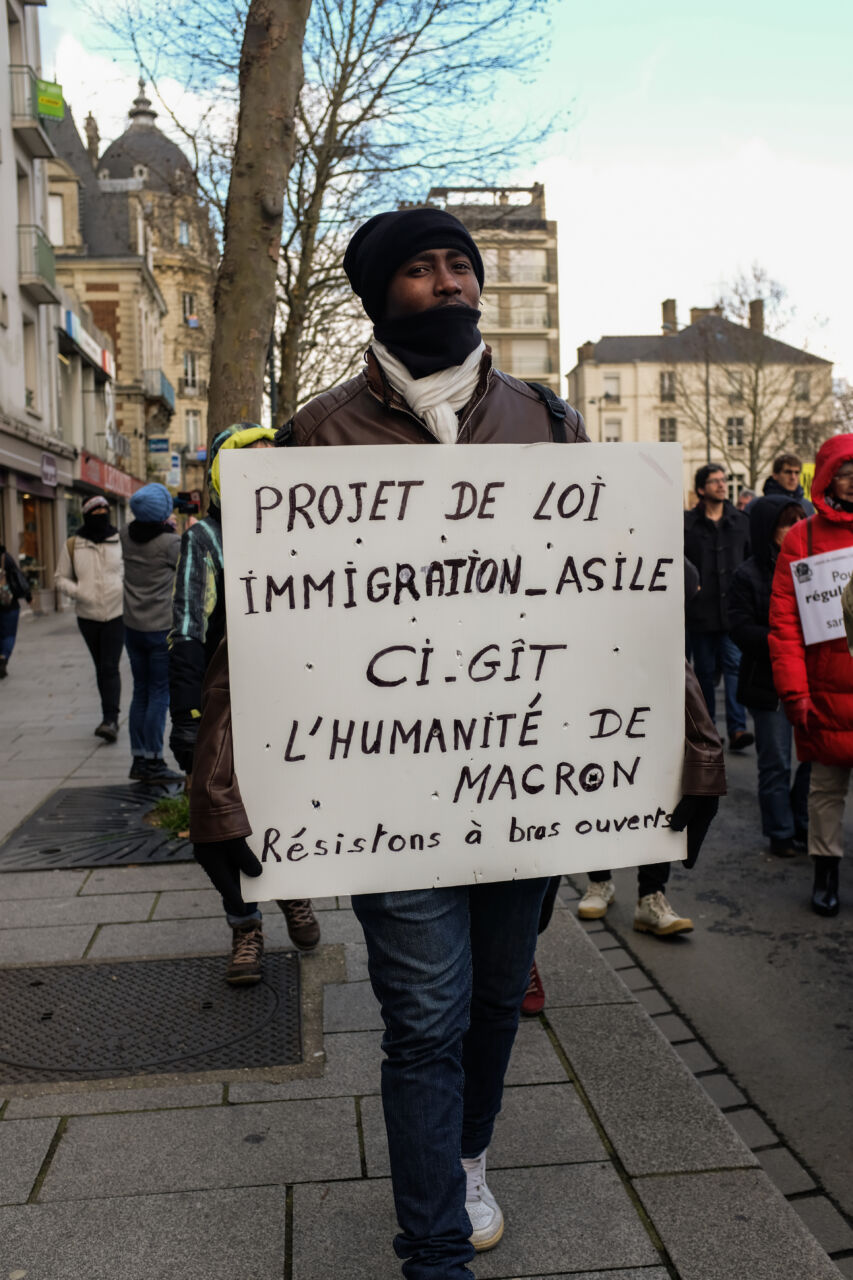 PROJET DE LOI
IMMIGRATION_ASILE
CI-GÎT
L'HUMANITÉ DE
MACRON
Résistons à bras ouverts